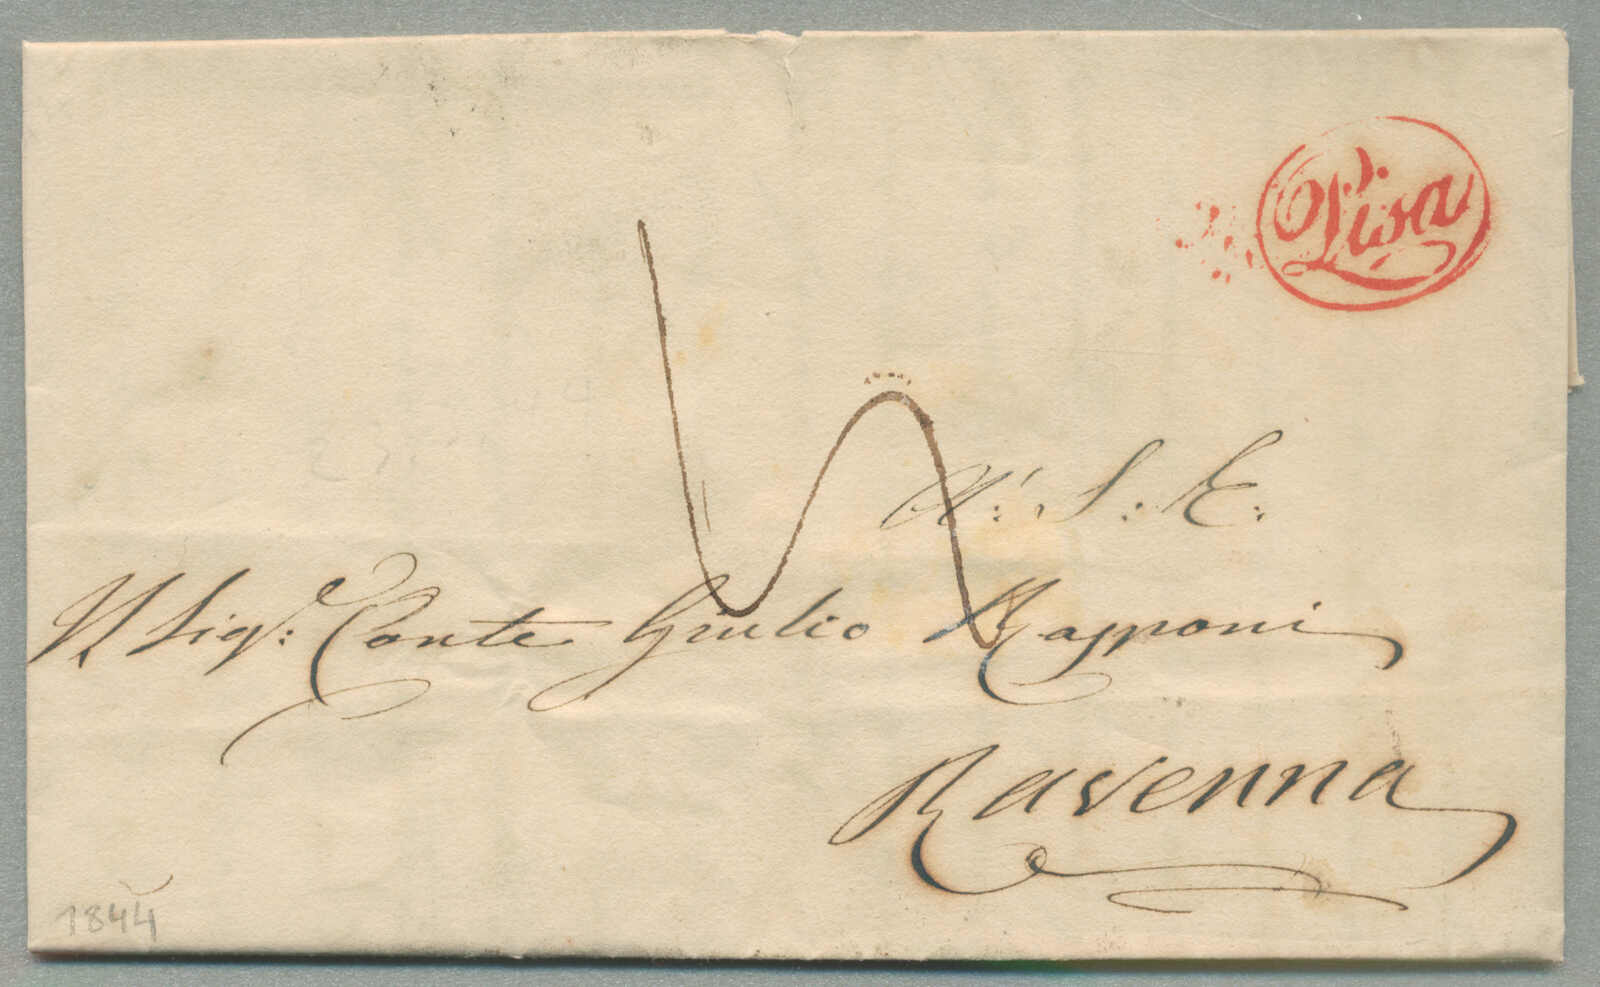 Pisa
A': S: E:
Il Sigr: Conte Giulio Rasponi
Ravenna
1844